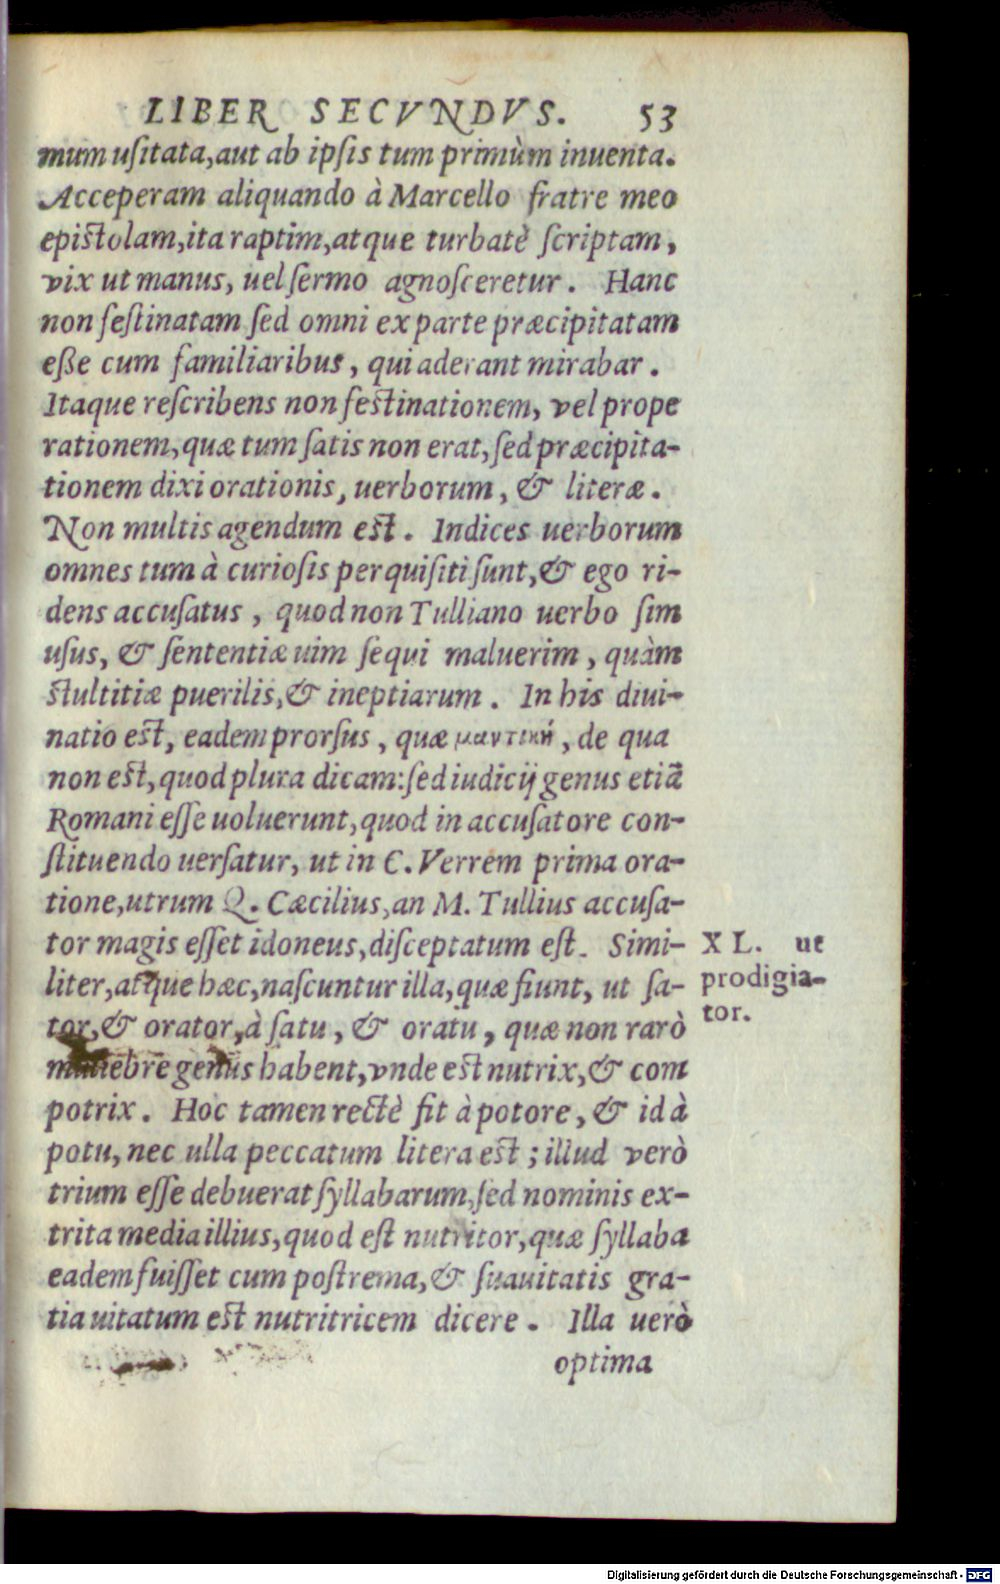 LIBER SECVNDVS. 53
mum uſitata, aut ab ipſis tum primùm inuenta.
Acceperam aliquando à Marcello fratre meo
epiſtolam, ita raptim, atque turbatè ſcriptam,
vix ut manus, uel ſermo agnoſceretur. Hanc
non feſtinatam ſed omni ex parte præcipitatam
eſſe cum familiaribus, qui aderant mirabar.
Itaque reſcribens non feſtinationem, vel prope
rationem, quæ tum ſatis non erat, ſed præcipita-
tionem dixi orationis, uerborum, & literæ.
Non multis agendum eſt. Indices uerborum
omnes tum à curioſis perquiſiti ſunt, & ego ri-
dens accuſatus, quod non Tulliano uerbo ſim
uſus, & ſententiæ uim ſequi maluerim, quàm
ſtultitiæ puerilis, & ineptiarum. In his diui-
natio eſt, eadem prorſus, quæ μαντική, de qua
non eſt, quod plura dicam: ſed iudicij genus etiã
Romani eſſe uoluerunt, quod in accuſatore con-
ſtituendo uerſatur, ut in C. Verrem prima ora-
tione, utrum Q. Cæcilius, an M. Tullius accuſa-
tor magis eſſet idoneus, diſceptatum eſt. Simi-
liter, atque hæc, naſcuntur illa, quæ fiunt, ut ſa-
tor, & orator, à ſatu, & oratu, quæ non rarò
muliebre genus habent, vnde eſt nutrix, & com
potrix. Hoc tamen rectè fit à potore, & id à
potu, nec ulla peccatum litera eſt; illud verò
trium eſſe debuerat ſyllabarum, ſed nominis ex-
trita media illius, quod eſt nutritor, quæ ſyllaba
eadem fuiſſet cum poſtrema, & ſuauitatis gra-
tia uitatum eſt nutritricem dicere. Illa uerò
optima
XL. ut
prodigia-
tor.
Digitalisierung gefördert durch die Deutsche Forschungsgemeinschaft - DFG